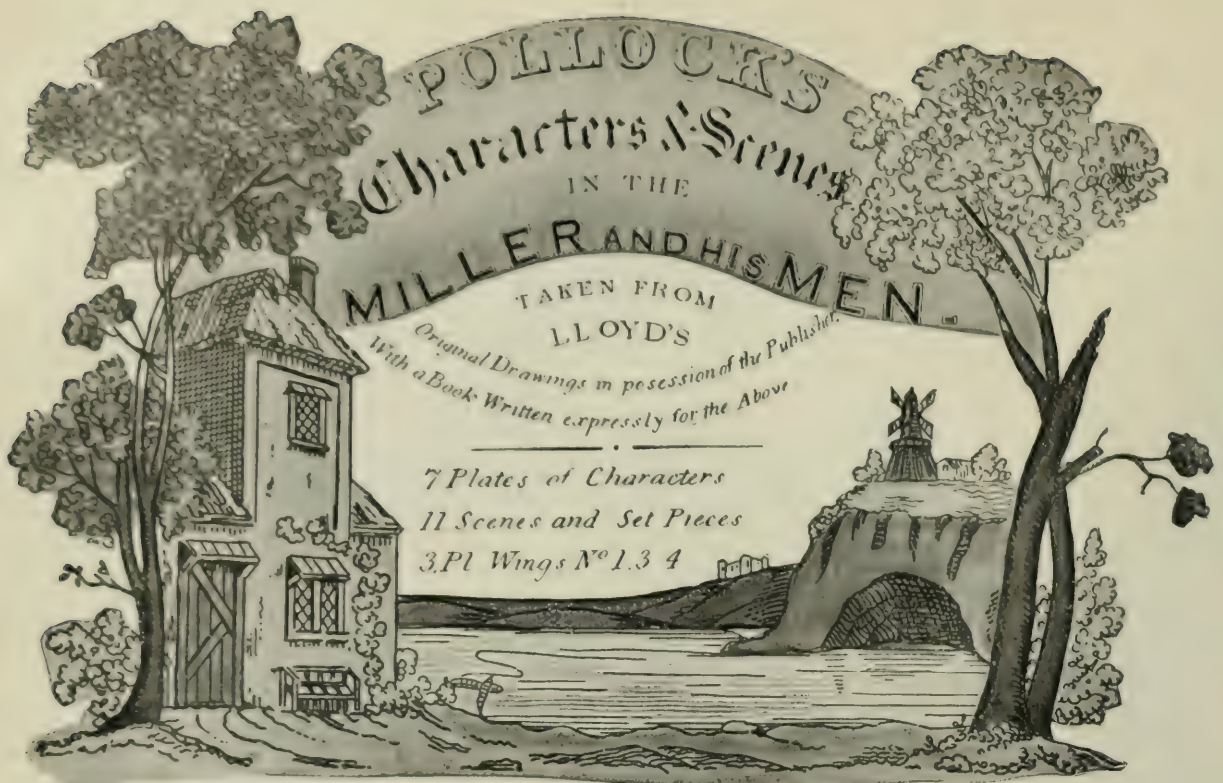 POLLOCK'S
Characters & Scenes
IN THE
MILLER AND HIS MEN.
TAKEN FROM
LLOYD'S
Original Drawings in posession of the Publisher.
With a Book Written expressly for the Above
7 Plates of Characters
11 Scenes and Set Pieces
3.Pl Wings Nº 1.3 4